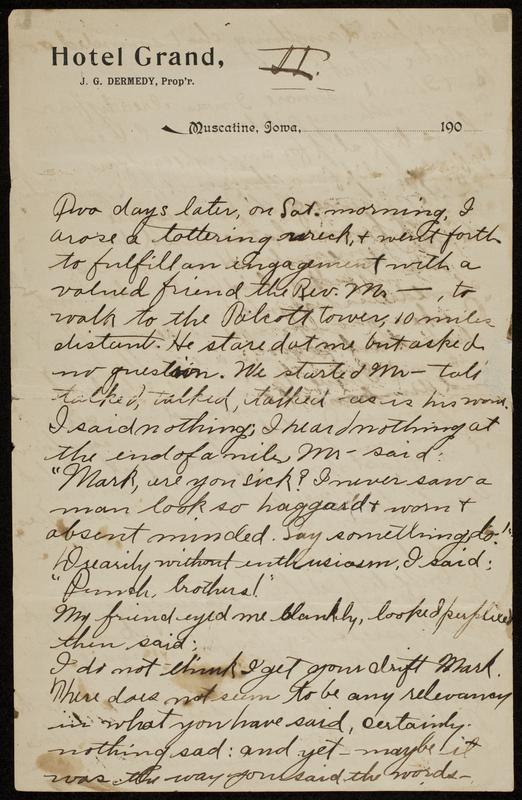 Hotel Grand,
II.
J. G. DERMEDY, Prop'r.
Muscatine, Iowa, 190
Two days later, on Sat. morning, I
arose a tottering wreck, & went forth
to fulfill an engagement with a
valued friend the Rev. Mr — , to
walk to the Talcott tower, 10 miles
distant. He stared at me but asked
no question. We started Mr — talk
talked, talked, talked - as is his wont.
I said nothing; I heard nothing at
the end of a mile, Mr - said:
"Mark, are you sick? I never saw a
man look so haggard & worn &
absent minded. Say something, do!"
Drearily without enthusiasm, I said:
"Punch, brothers!"
My friend eyed me blankly, looked perplexed
then said:
I do not think I get your drift Mark.
There does not seem to be any relevancy
in what you have said, certainly
nothing sad: and yet - maybe it
was the way you said the words -